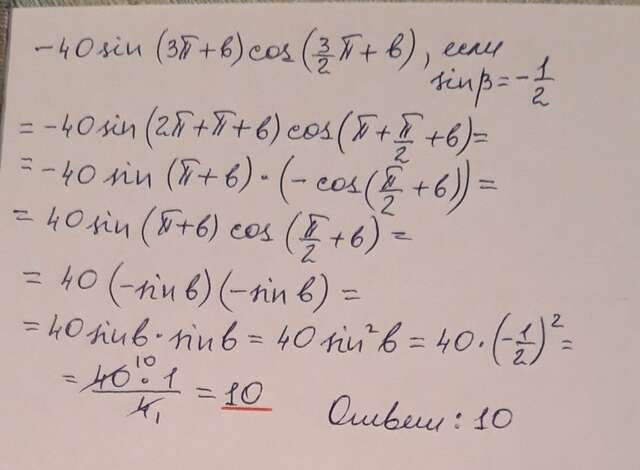 -40sin(3π+в)cos(3/2π+в), если
sinβ=-1/2
=-40sin(2π+π+в)cos(π+π/2+в)=
=-40sin(π+в)·(-cos(π/2+в))=
=40sin(π+в)cos(π/2+в)=
=40(-sinв)(-sinв)=
=40sinв·sinв=40sin²в=40·(-1/2)²=
=40·1/4=10
10 1
Ответ: 10